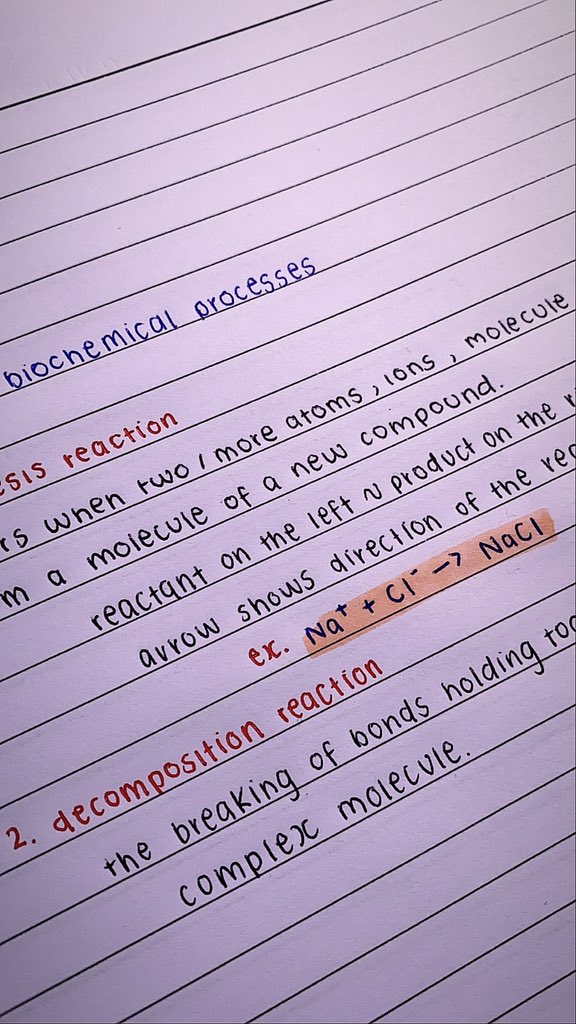 biochemical processes
reaction
when two / more atoms, ions, molecule
a molecule of a new compound.
reactant on the left ~ product on the
arrow shows direction of the
ex. Na⁺ + Cl⁻ -> NaCl
2. decomposition reaction
the breaking of bonds holding
complex molecule.